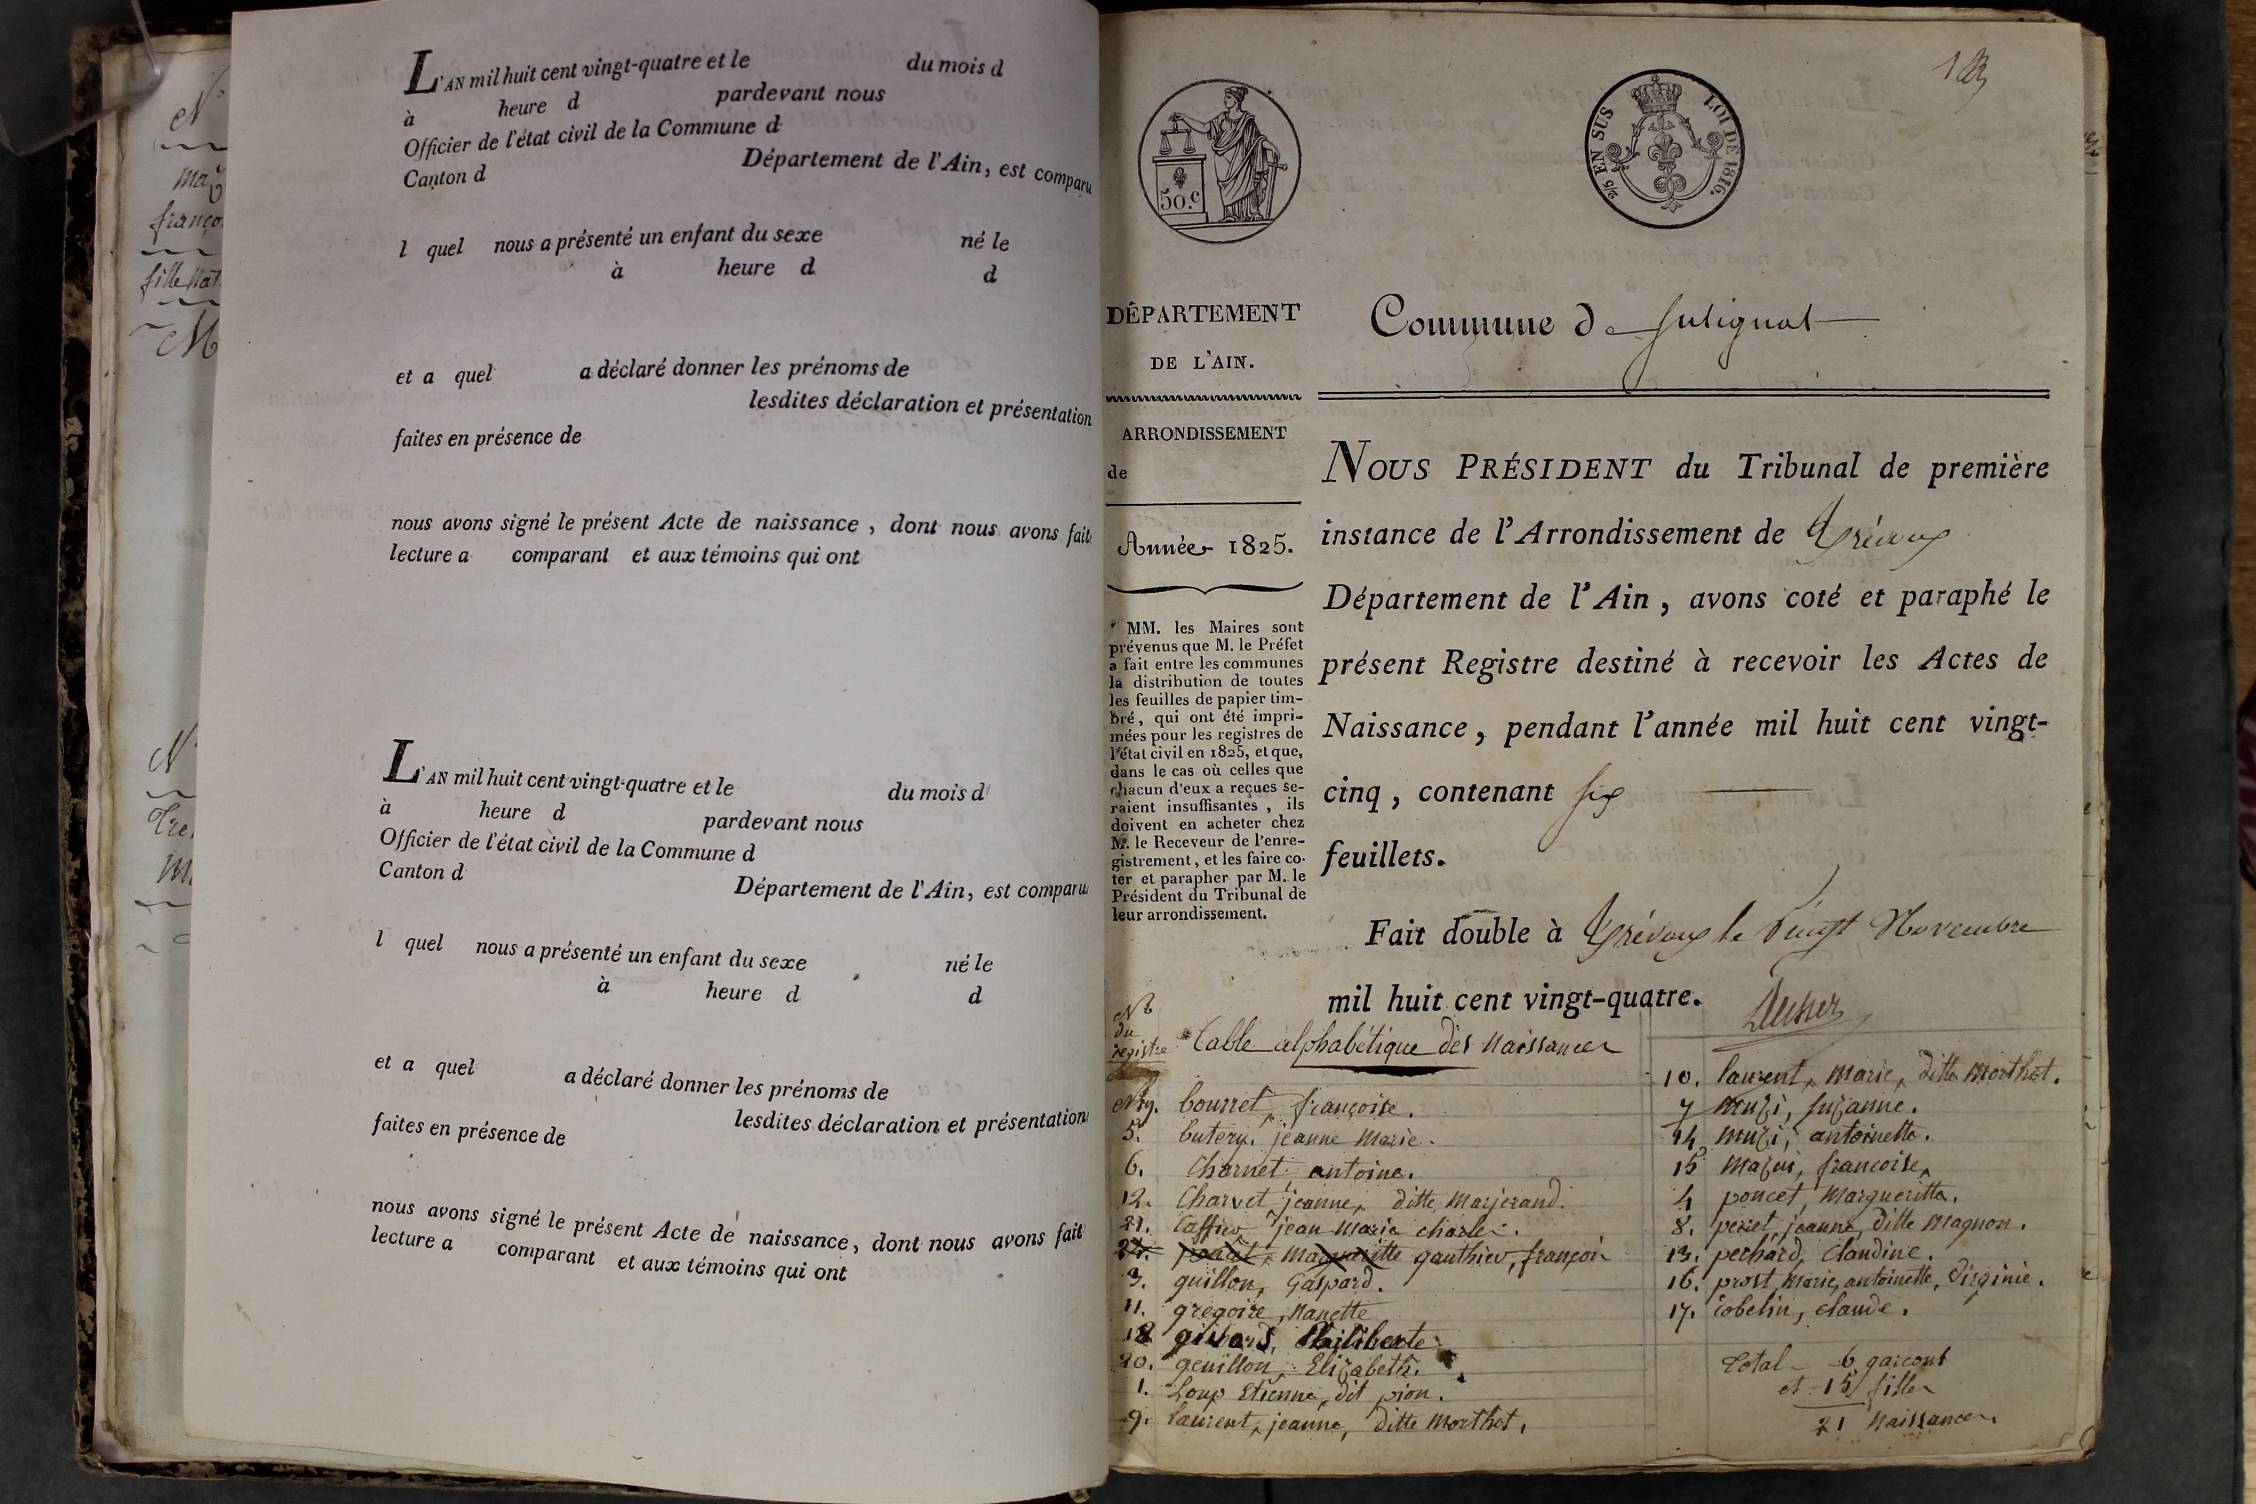 N
maz
franço
fille nat
M
N
L'AN mil huit cent vingt-quatre et le du mois d
à heure d pardevant nous
Officier de l'état civil de la Commune d
Canton d Département de l'Ain, est comparu
l quel nous a présenté un enfant du sexe né le
à heure d d
et a quel a déclaré donner les prénoms de
lesdites déclaration et présentation
faites en présence de
nous avons signé le présent Acte de naissance, dont nous avons fait
lecture a comparant et aux témoins qui ont
L'AN mil huit cent vingt-quatre et le du mois d
à heure d pardevant nous
Officier de l'état civil de la Commune d
Canton d
Département de l'Ain, est comparu
l quel nous a présenté un enfant du sexe né le
à heure d d
et a quel a déclaré donner les prénoms de
lesdites déclaration et présentation
faites en présence de
nous avons signé le présent Acte de naissance, dont nous avons fait
lecture a comparant et aux témoins qui ont
50.c
2/5 EN SUS LOI DE 1816.
DÉPARTEMENT
DE L'AIN.
ARRONDISSEMENT
de
Année 1825.
MM. les Maires sont
prévenus que M. le Préfet
a fait entre les communes
la distribution de toutes
les feuilles de papier tim-
bré, qui ont été impri-
mées pour les registres de
l'état civil en 1825, et que,
dans le cas où celles que
chacun d'eux a reçues se-
raient insuffisantes, ils
doivent en acheter chez
M. le Receveur de l'enre-
gistrement, et les faire co-
ter et parapher par M. le
Président du Tribunal de
leur arrondissement.
Commune de Sulignat
NOUS PRÉSIDENT du Tribunal de première
instance de l'Arrondissement de Trévoux
Département de l'Ain, avons coté et paraphé le
présent Registre destiné à recevoir les Actes de
Naissance, pendant l'année mil huit cent vingt-
cinq, contenant six
feuillets.
Fait double à Trévoux le Vingt Novembre
mil huit cent vingt-quatre.
No
du
registre
Table alphabétique des Naissances
19. bourret, françoise.
5. butery, jeanne Marie.
6. Charnet antoine.
12. Charvet, jeanne, ditte Marjerand.
21. jean Marie charles.
gauthier, françois
3. guillon, Gaspard.
11. gregoire, Nanette
18 Philiberte
20. genillon, Elizabeth.
1. Loup Etienne, dit pion.
9. laurent, jeanne, ditte Morthet.
10. laurent, Marie, ditte Morthet.
7 Muzi, suzanne.
14 Muzi, antoinette.
15 Mazui, françoise,
4 poncet, Margueritte.
8. perret, jeanne, ditte Magnon.
13. pechard, Claudine.
16. prost, Marie, antoinette, Virginie.
17. robelin, claude.
Total 6 garçons
et 15 filles
21 Naissances.